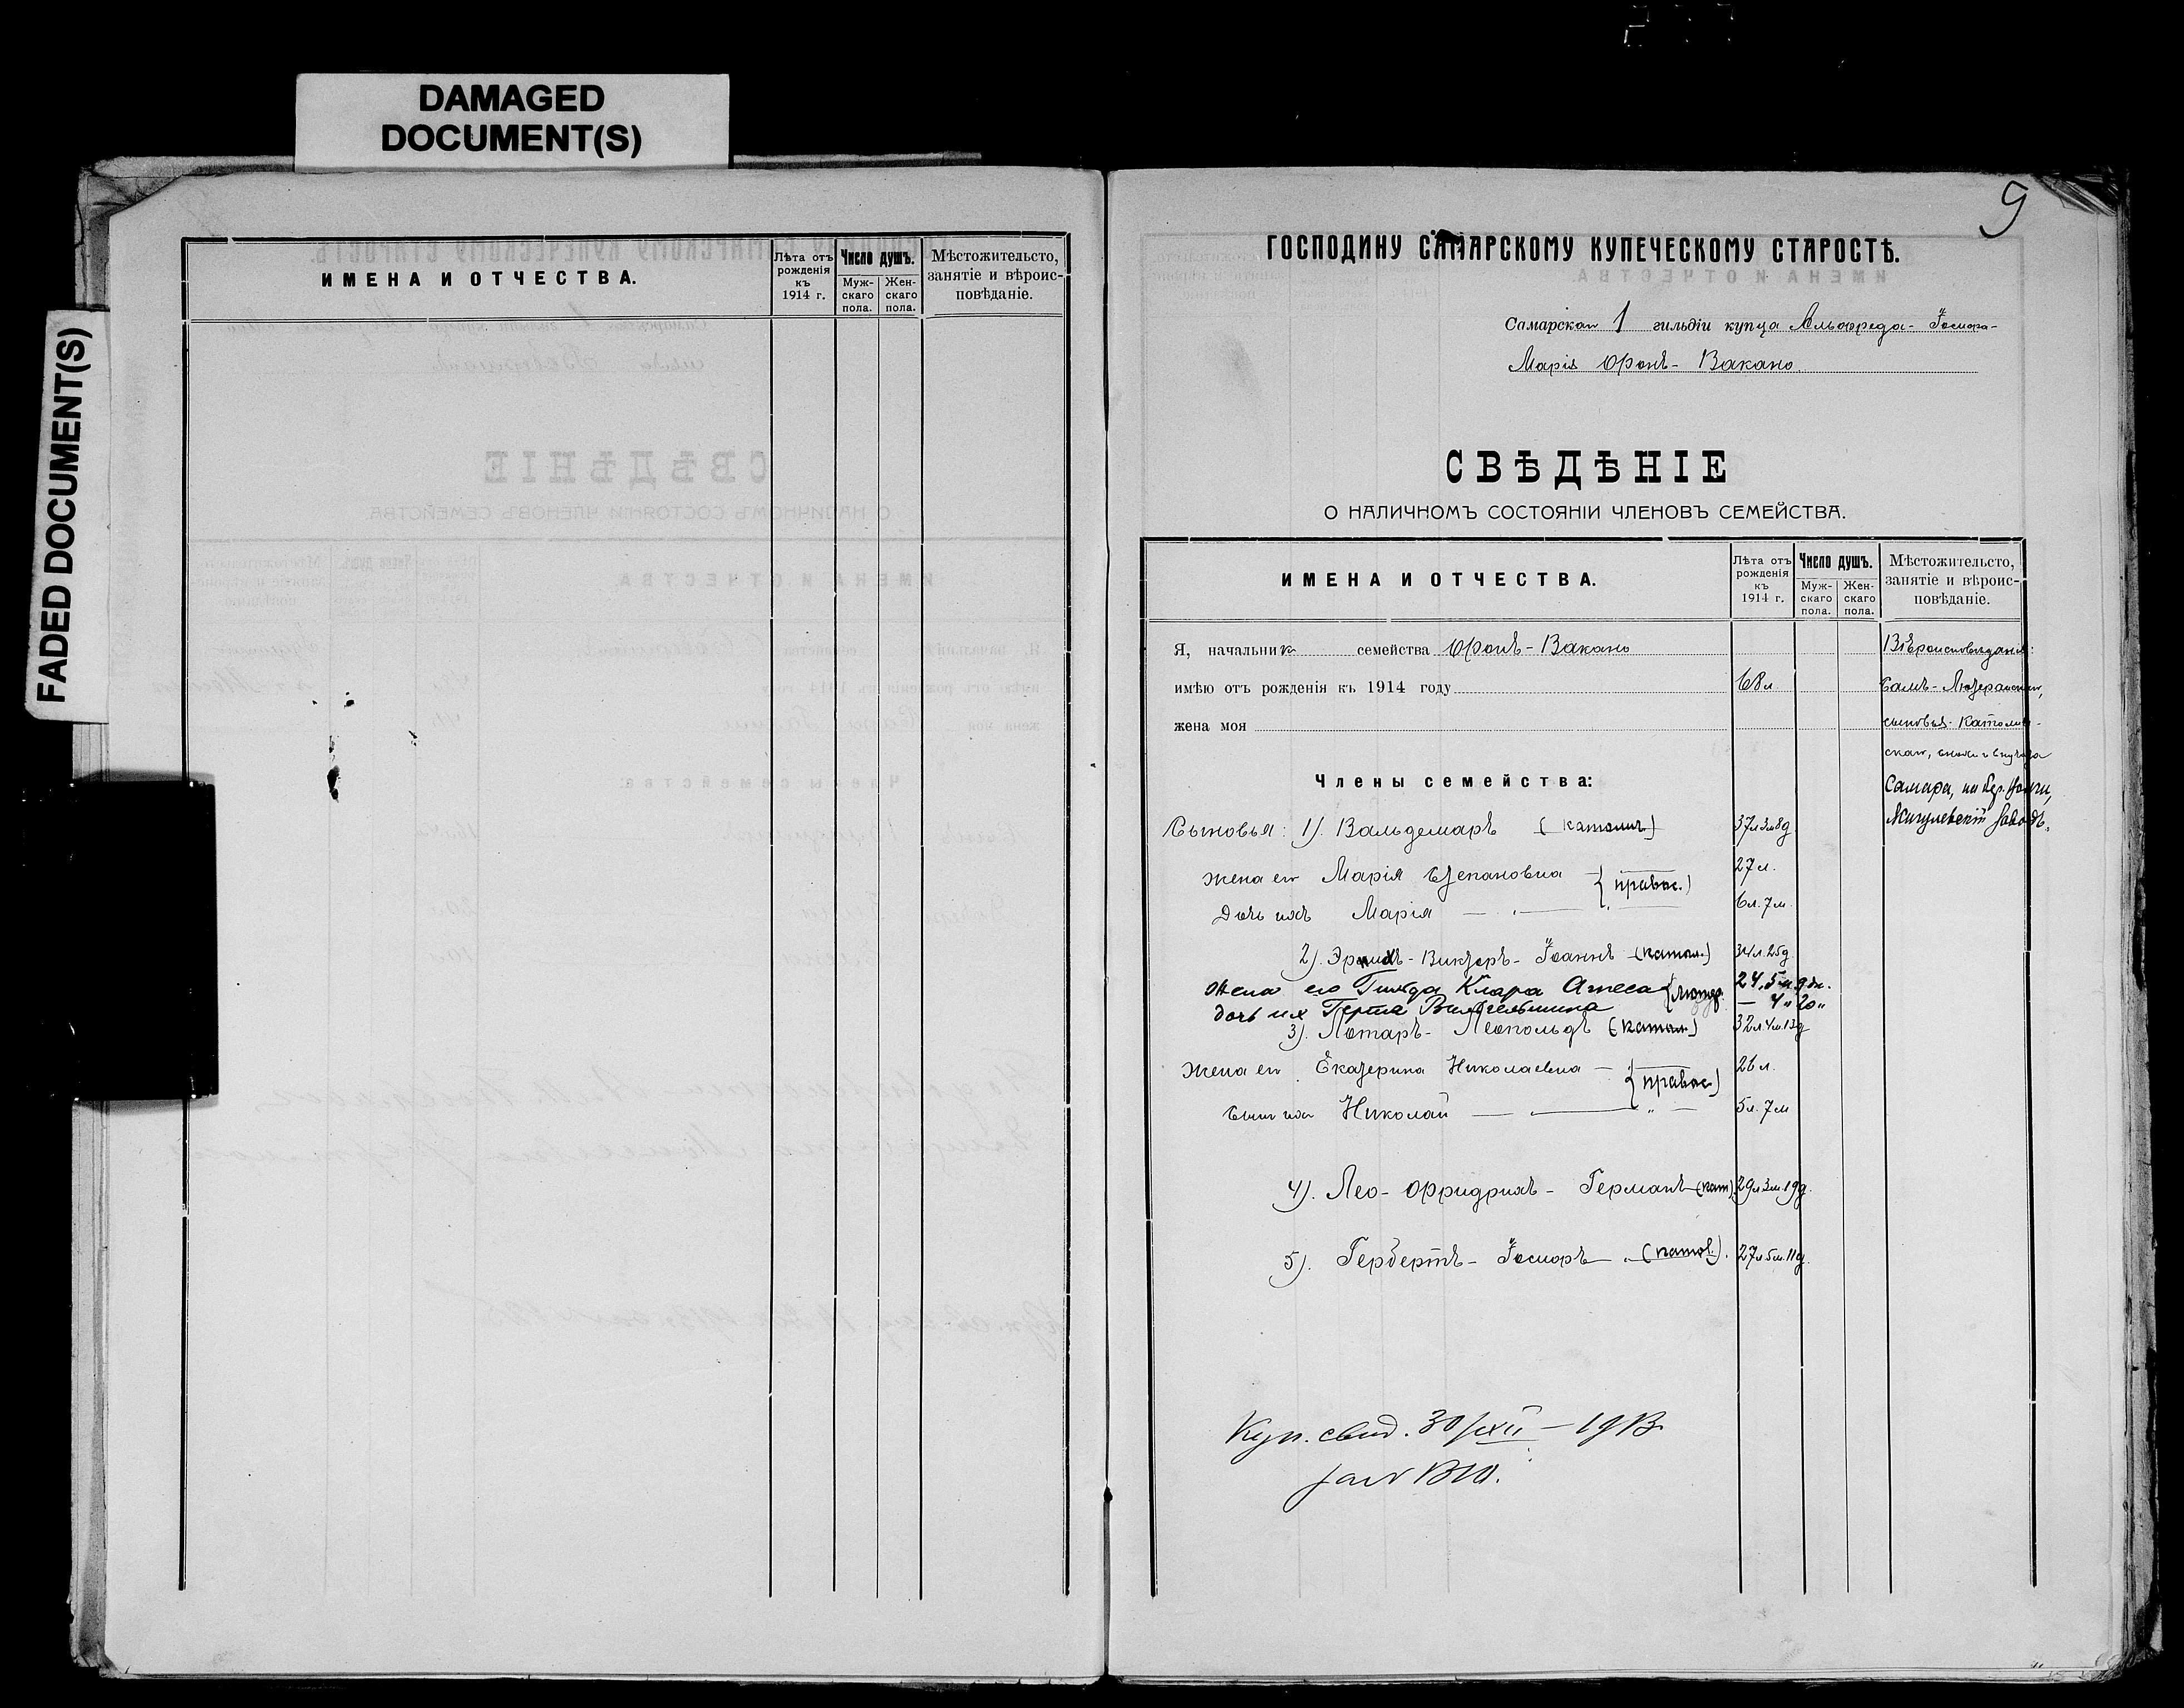 DAMAGED
DOCUMENT(S)
FADED DOCUMENT(S)
ИМЕНА И ОТЧЕСТВА.
Лѣта отъ рожденія къ 1914 г.
Число душъ.
Мужскаго пола.
Женскаго пола.
Мѣстожительсто, занятіе и вѣроисповѣданіе.
9
ГОСПОДИНУ САМАРСКОМУ КУПЕЧЕСКОМУ СТАРОСТѢ.
Самарскаго 1 гильдіи купца Альфреда-Іосифа-
Марія Фонъ-Вакано
СВѢДѢНІЕ
О НАЛИЧНОМЪ СОСТОЯНІИ ЧЛЕНОВЪ СЕМЕЙСТВА.
ИМЕНА И ОТЧЕСТВА.
Лѣта отъ рожденія къ 1914 г.
Число душъ.
Мужскаго пола.
Женскаго пола.
Мѣстожительсто, занятіе и вѣроисповѣданіе.
Я, начальникъ семейства Фонъ-Вакано Вѣроисповѣданія:
имѣю отъ рожденія къ 1914 году 68 л Самъ-Лютеранскаго,
жена моя сыновья-Католиче-
скаго, снохи и внучата
Члены семейства:
Самара, на бер. Волги,
Жигулевскій заводъ.
Сыновья: 1). Вальдемаръ (католикъ) 37л 3м 8д
жена его Марія Степановна {правос.) 27 л.
дочь ихъ Марія — " — 6 л. 7 м.
2). Эрихъ-Викторъ-Іоаннъ (катол.) 34 л. 25 д.
Жена его Гильда Клара Агнеса {лютер. 24, 5 м 9 дн.
дочь их Герта Вильгельмина — 4 " 20 "
3). Лотаръ-Леопольдъ (катол.) 32 л. 4 м. 13 д
Жена его Екатерина Николаевна — {правос.) 26 л.
сынъ ихъ Николай — " — 5 л. 7 м
4). Лео-Фридрихъ-Германъ (кат.) 29 л 3 м. 19 д.
5). Гербертъ-Іосифъ (катол.). 27 л 5 м. 11 д.
Куп. свид. 30/XII — 1913
за №